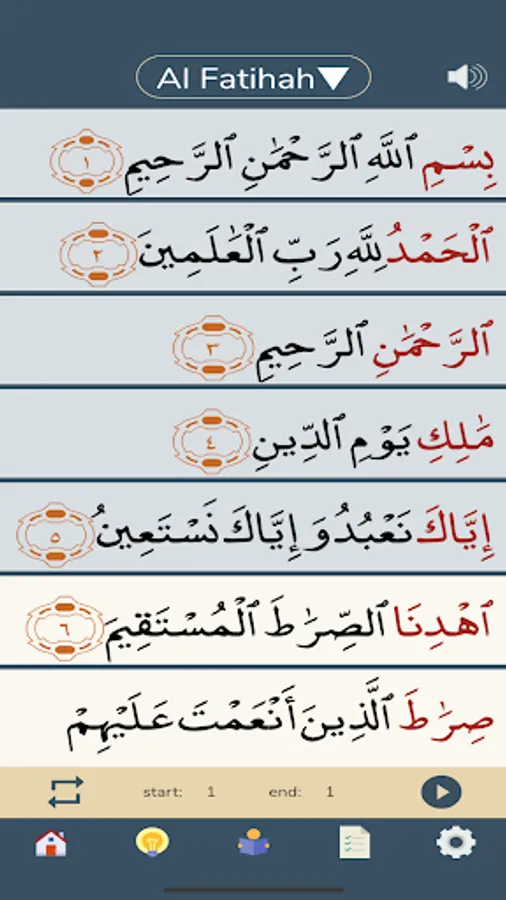 Al Fatihah▼
بِسْمِ ٱللَّهِ ٱلرَّحْمَٰنِ ٱلرَّحِيمِ ١
ٱلْحَمْدُ لِلَّهِ رَبِّ ٱلْعَٰلَمِينَ ٢
ٱلرَّحْمَٰنِ ٱلرَّحِيمِ ٣
مَٰلِكِ يَوْمِ ٱلدِّينِ ٤
إِيَّاكَ نَعْبُدُ وَإِيَّاكَ نَسْتَعِينُ ٥
ٱهْدِنَا ٱلصِّرَٰطَ ٱلْمُسْتَقِيمَ ٦
صِرَٰطَ ٱلَّذِينَ أَنْعَمْتَ عَلَيْهِمْ
start: 1 end: 1